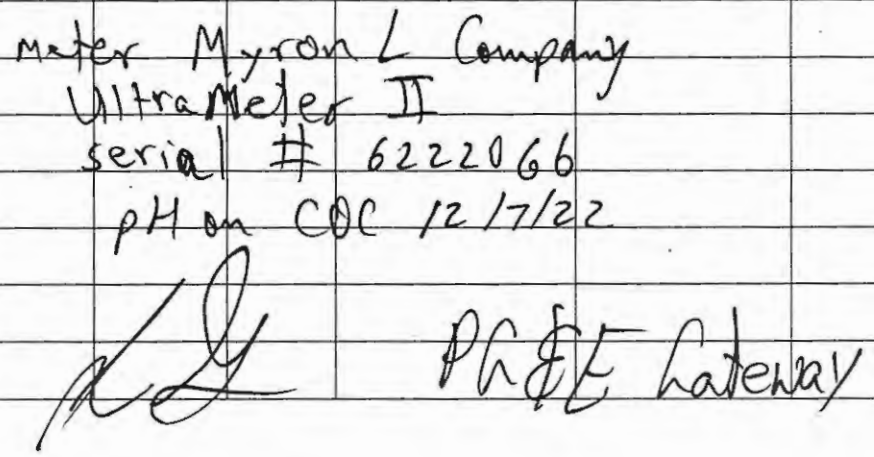 Meter Myron L Company
UltraMeter II
serial # 6222066
pH on COC 12/7/22
PG&E Gateway